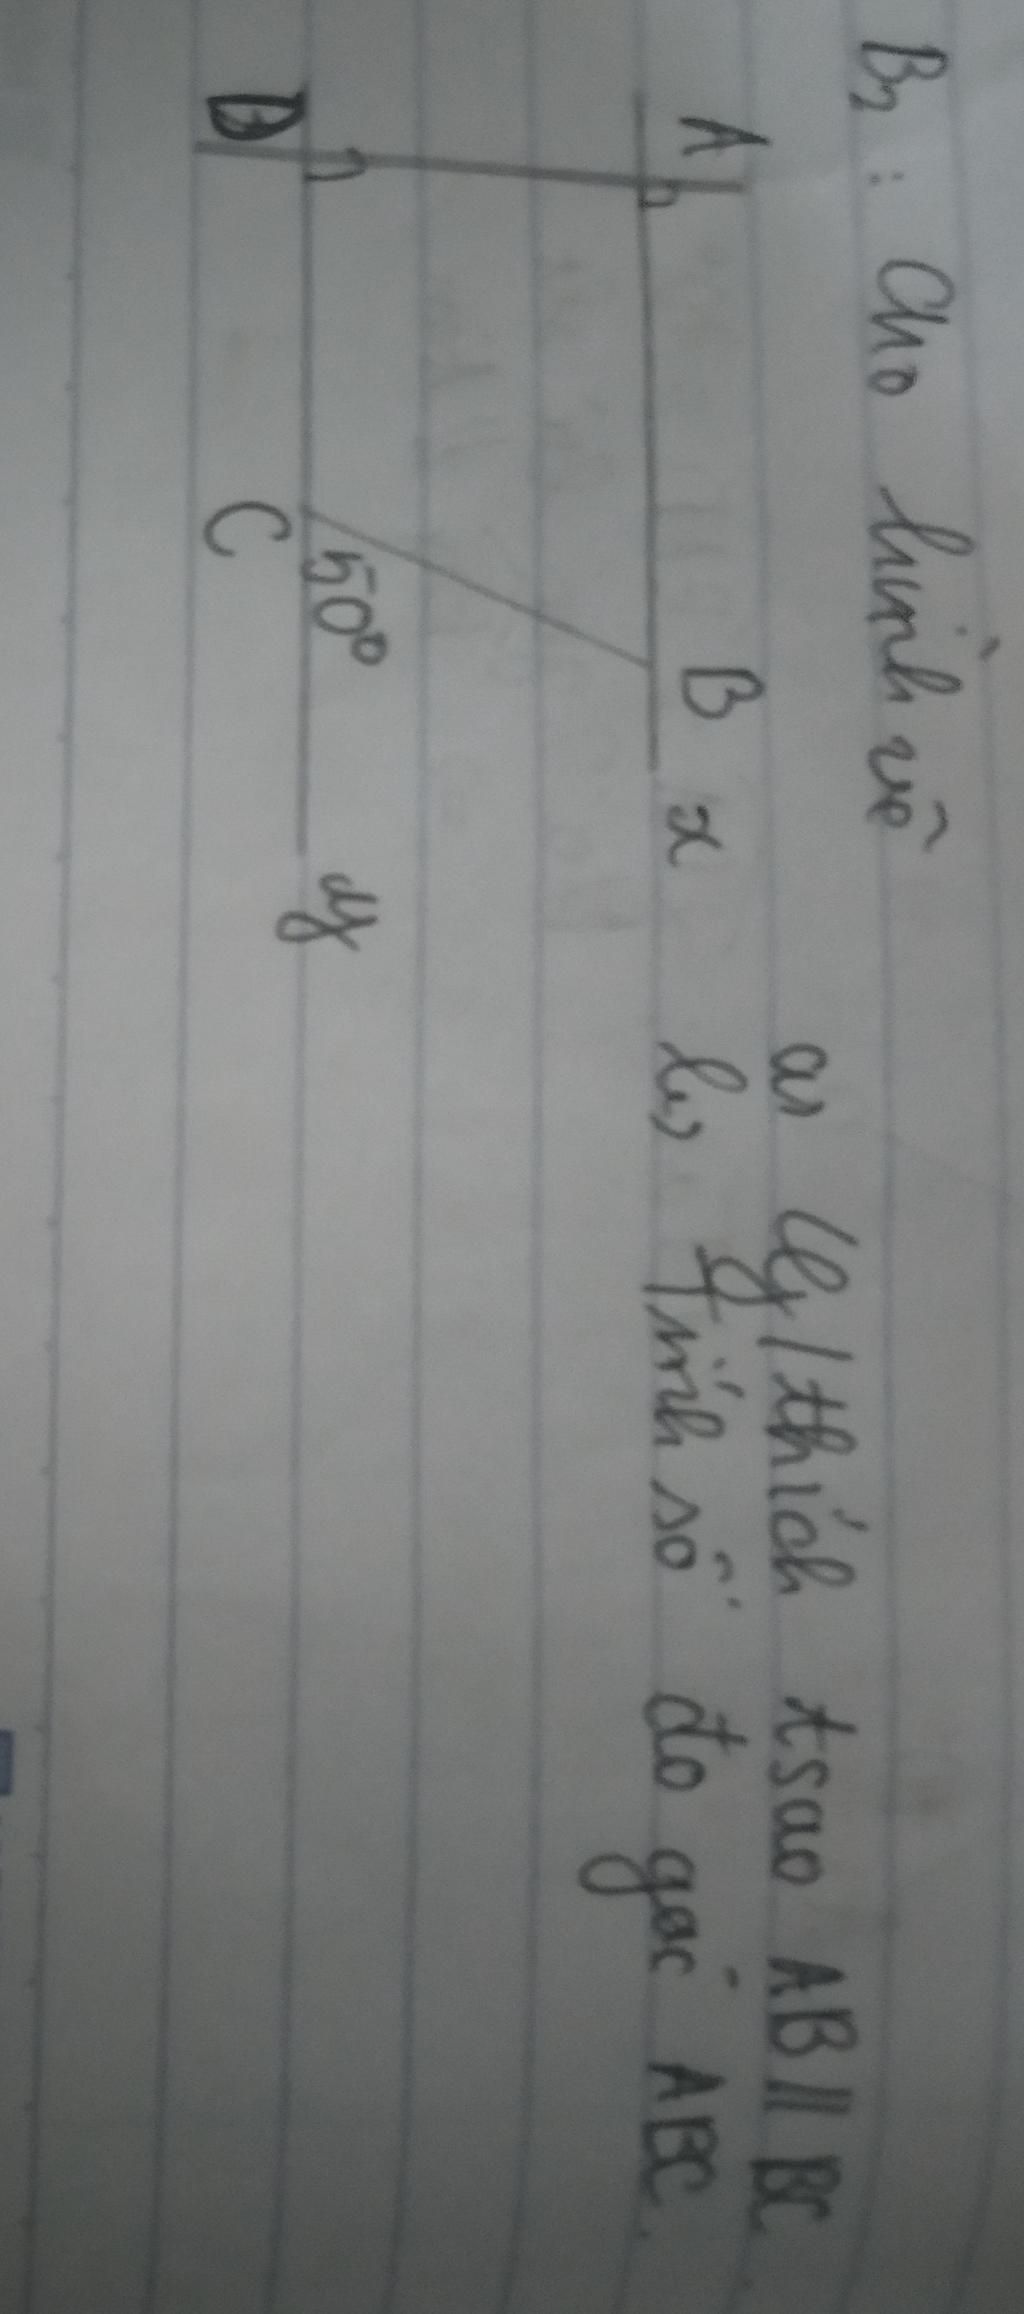 B2 : Cho hình vẽ
A B x
D C 50° y
a, G/thích tsao AB // BC
b, Tính số đo góc ABC.